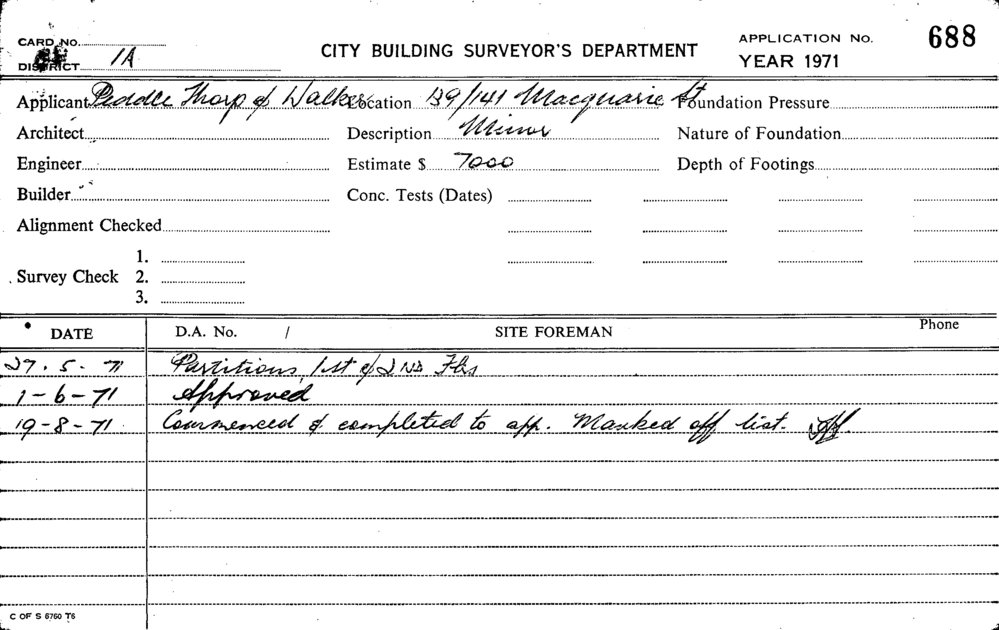 CARD NO.
CITY BUILDING SURVEYOR'S DEPARTMENT
APPLICATION No. 688
DISTRICT 1A
YEAR 1971
Applicant Peddle Thorp & Walker Location 139/141 Macquarie St Foundation Pressure
Architect Description Minor Nature of Foundation
Engineer Estimate $ 7000 Depth of Footings
Builder Conc. Tests (Dates)
Alignment Checked
1.
Survey Check 2.
3.
DATE D.A. No. / SITE FOREMAN Phone
27.5.71 Partitions, 1st & 2ND Flrs
1-6-71 Approved
19-8-71 Commenced & completed to app. Marked off list.
C OF S 6760 T6